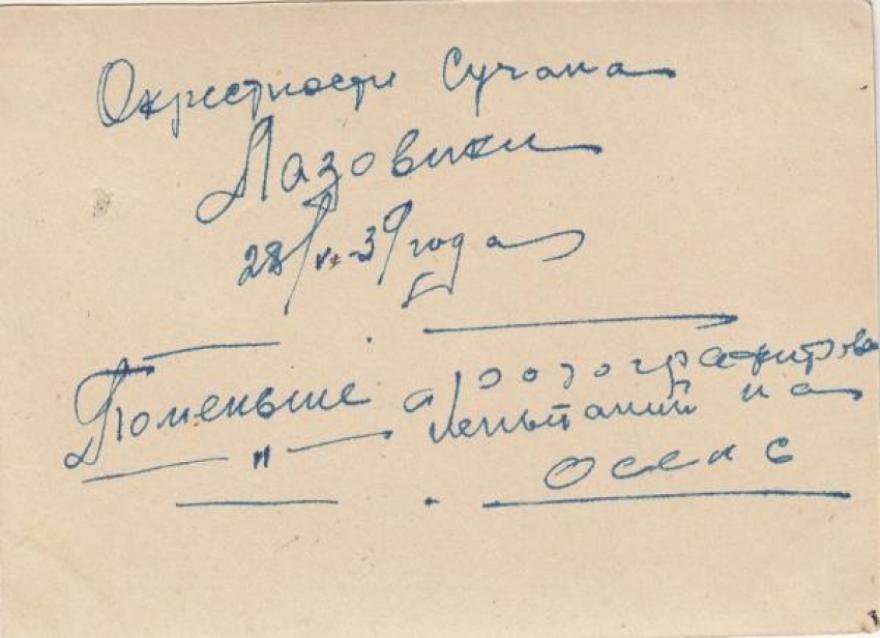 Окрестности Сучана
Лазовики
28/VI-39 года
Поменьше фотографиров
— " — испытаний на
осень